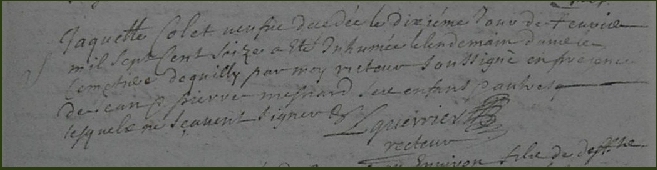 Jaquette Colet veufve decedée le dixiéme Jour de fevrier
mil sept cent seize a eté Inhumée le lendemain dans le
cemetiere de quilly par moy recteur soussigné en presence
de Jean p pierre mesnard ses enfans pauvres
lesquels ne sçavent signer
Lguerrier
recteur
environ fils de deff.te